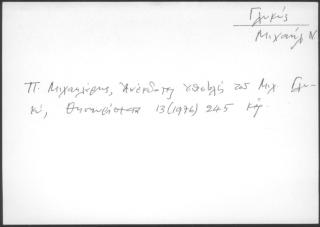 Γλυκύς
Μιχαήλ
Π. Μιχαηλάρης, Ἀνέκδοτη τοῦ Μιχ. Γλυ-
κύ, Θησαυρίσματα 13 (1976) 245